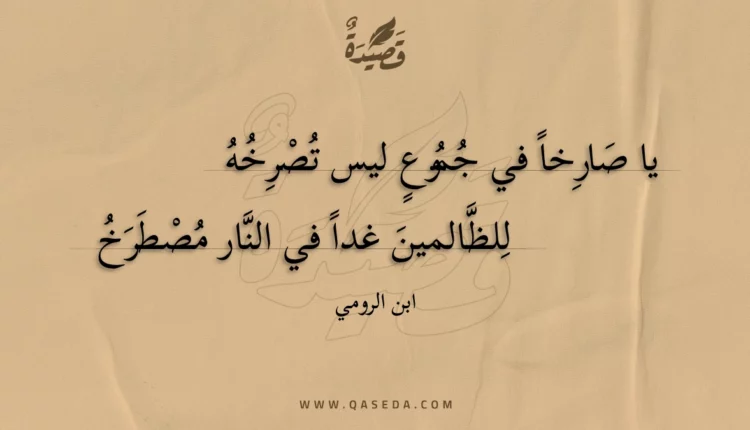 قَصِيدَةٌ
يا صَارِخاً في جُمُوعٍ ليس تُصْرِخُهُ
لِلظَّالمينَ غداً في النَّار مُصْطَرَخُ
ابن الرومي
WWW.QASEDA.COM